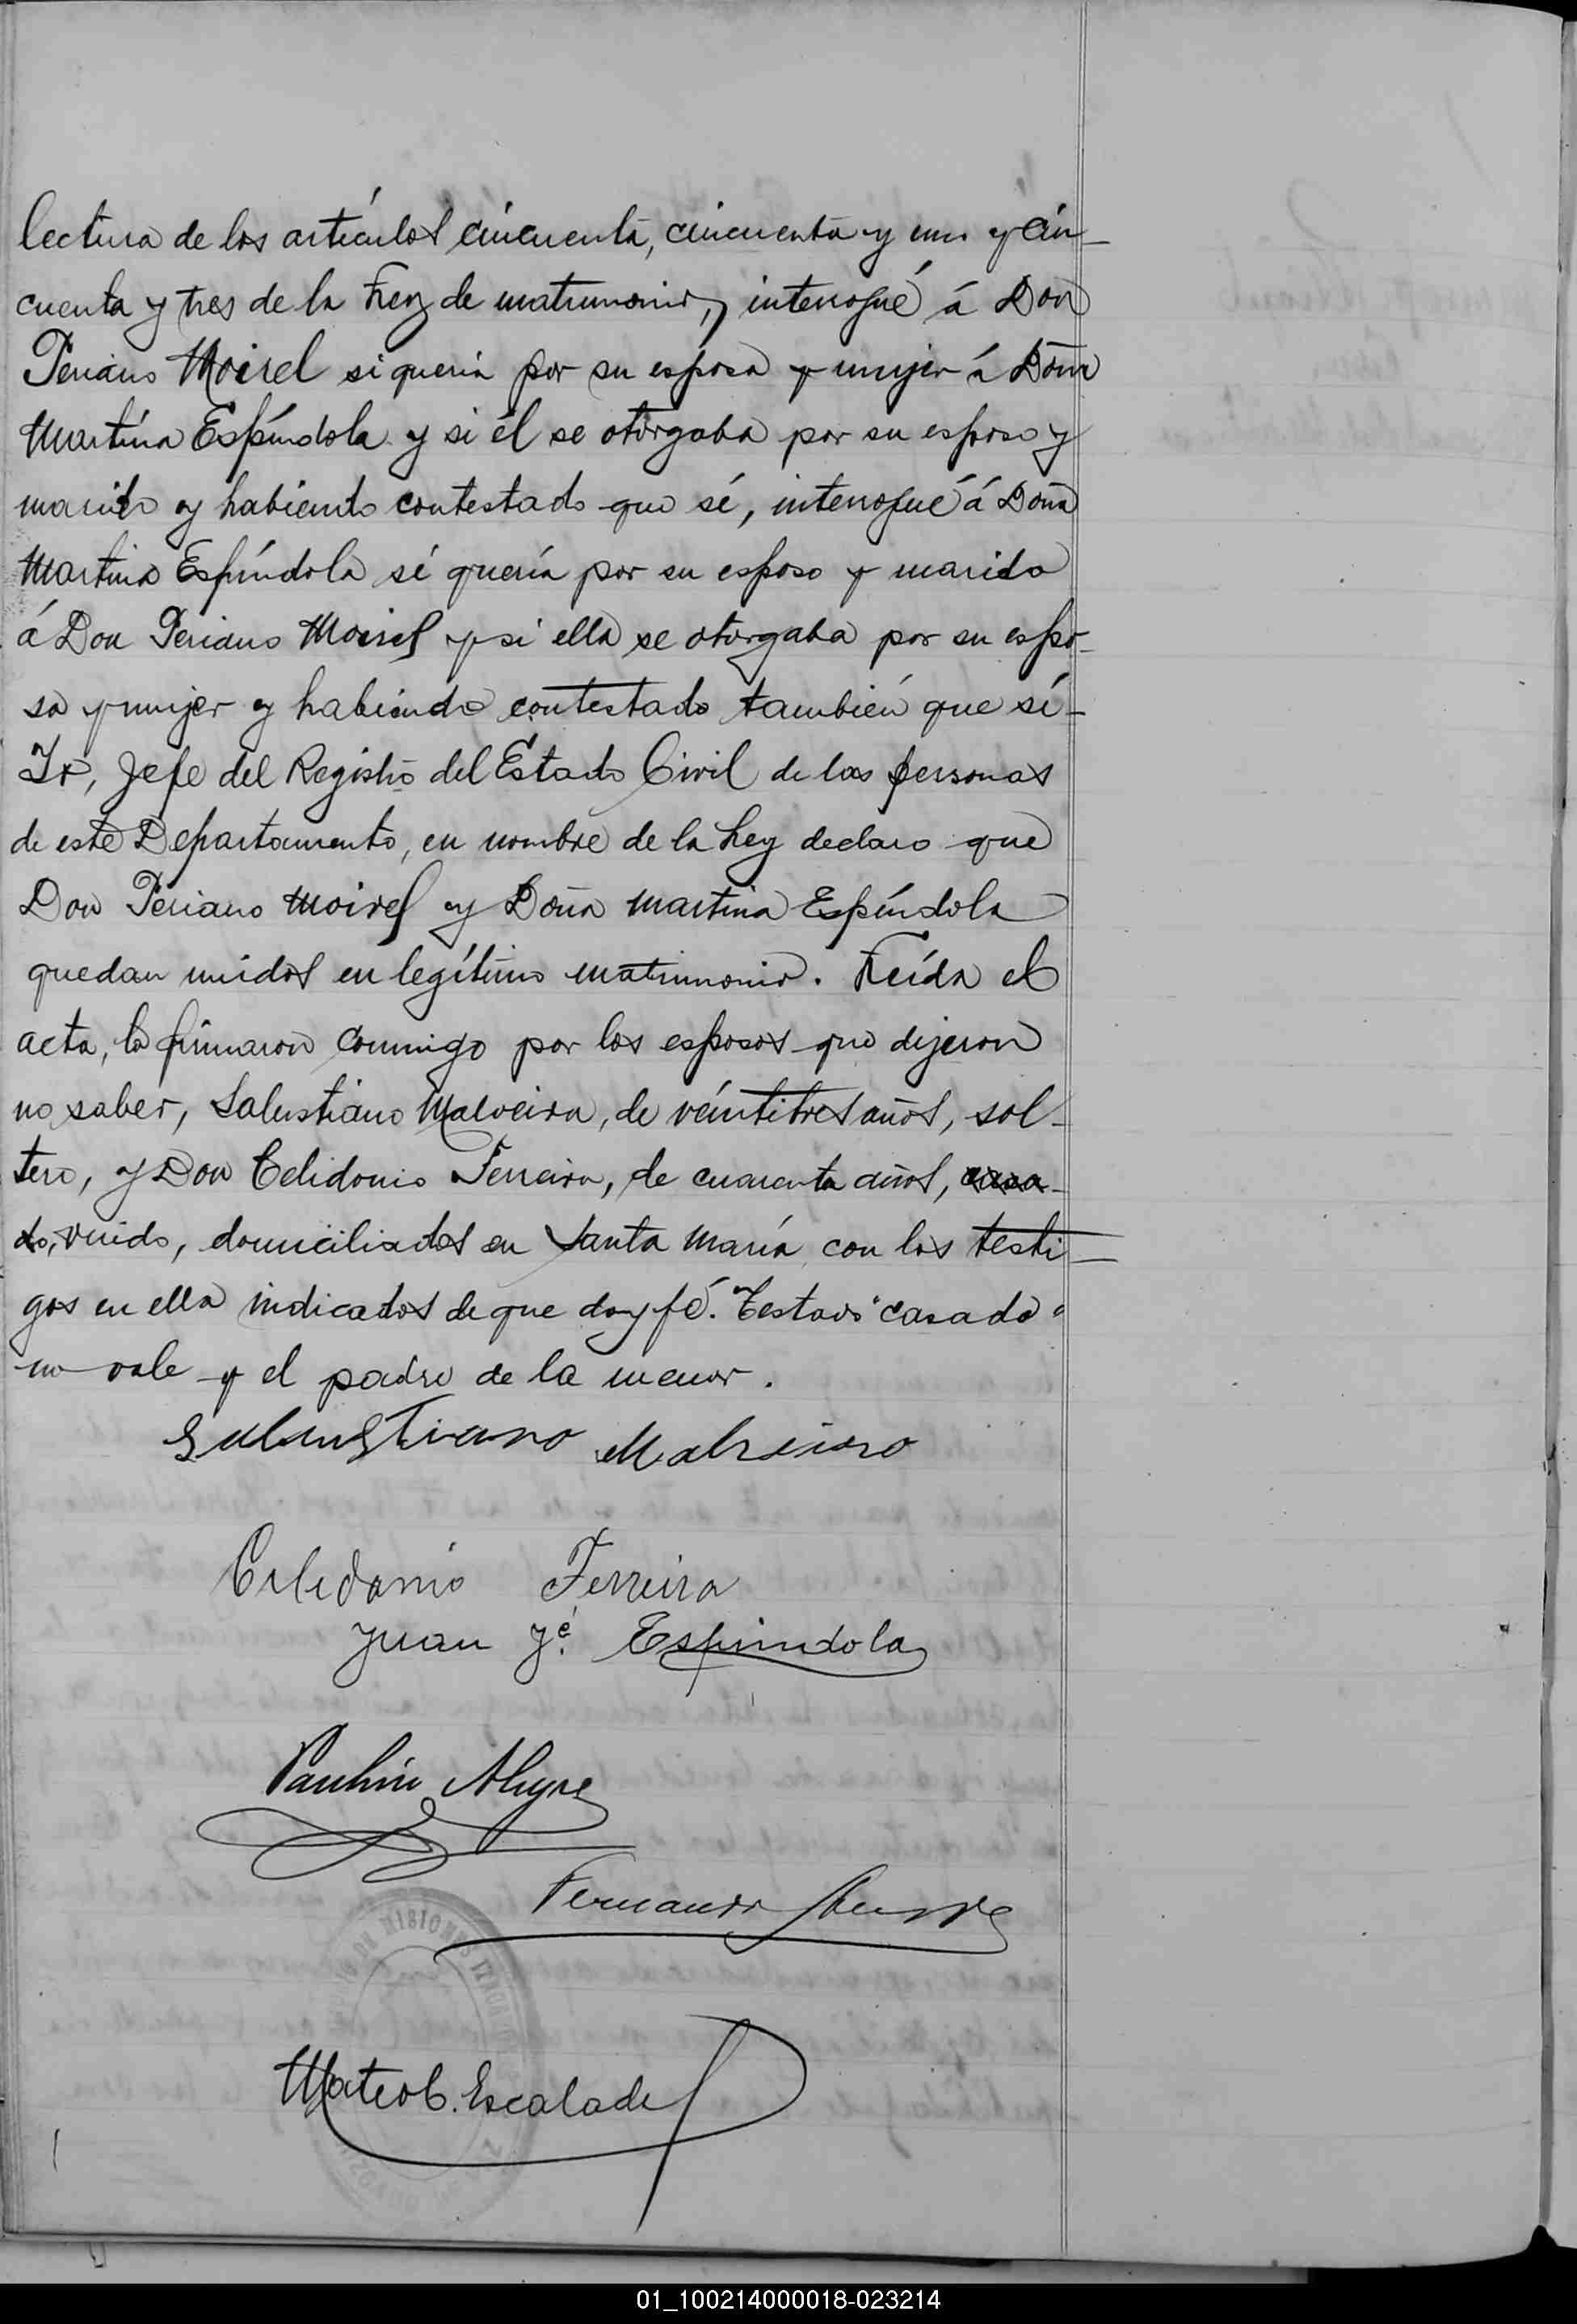 lectura de los artículos cincuenta, cincuenta y uno y cin-
cuenta y tres de la Ley de matrimonio, interrogué á Don
Peciano Moirel si queria por su esposa y mujer á Doña
Martina Espíndola y si él se otorgaba por su esposo y
marido y habiendo contestado que sí, interrogué á Doña
Martina Espíndola si quería por su esposo y marido
á Don Peciano Moirel y si ella se otorgaba por su espo-
sa y mujer y habiendo contestado también que sí-
Yo, Jefe del Registro del Estado Civil de las personas
de este Departamento, en nombre de la Ley declaro que
Don Peciano Moirel y Doña Martina Espíndola
quedan unidos en legítimo matrimonio. Leída el
acta, la firmaron conmigo por los esposos que dijeron
no saber, Salustiano Malveira, de veintitres años, sol-
tero, y Don Celidonio Ferreira, de cuarenta años, casa-
do, viudo, domiciliados en Santa María, con los testi-
gos en ella indicados de que doy fé. Testado "casado"
no vale y el padre de la menor.
Salustiano
Celedonio Ferreira
Juan Jé. Espindola
Paulino Alegre
Fernando
Mateo C. Escalade
MISIONES
01_100214000018-023214